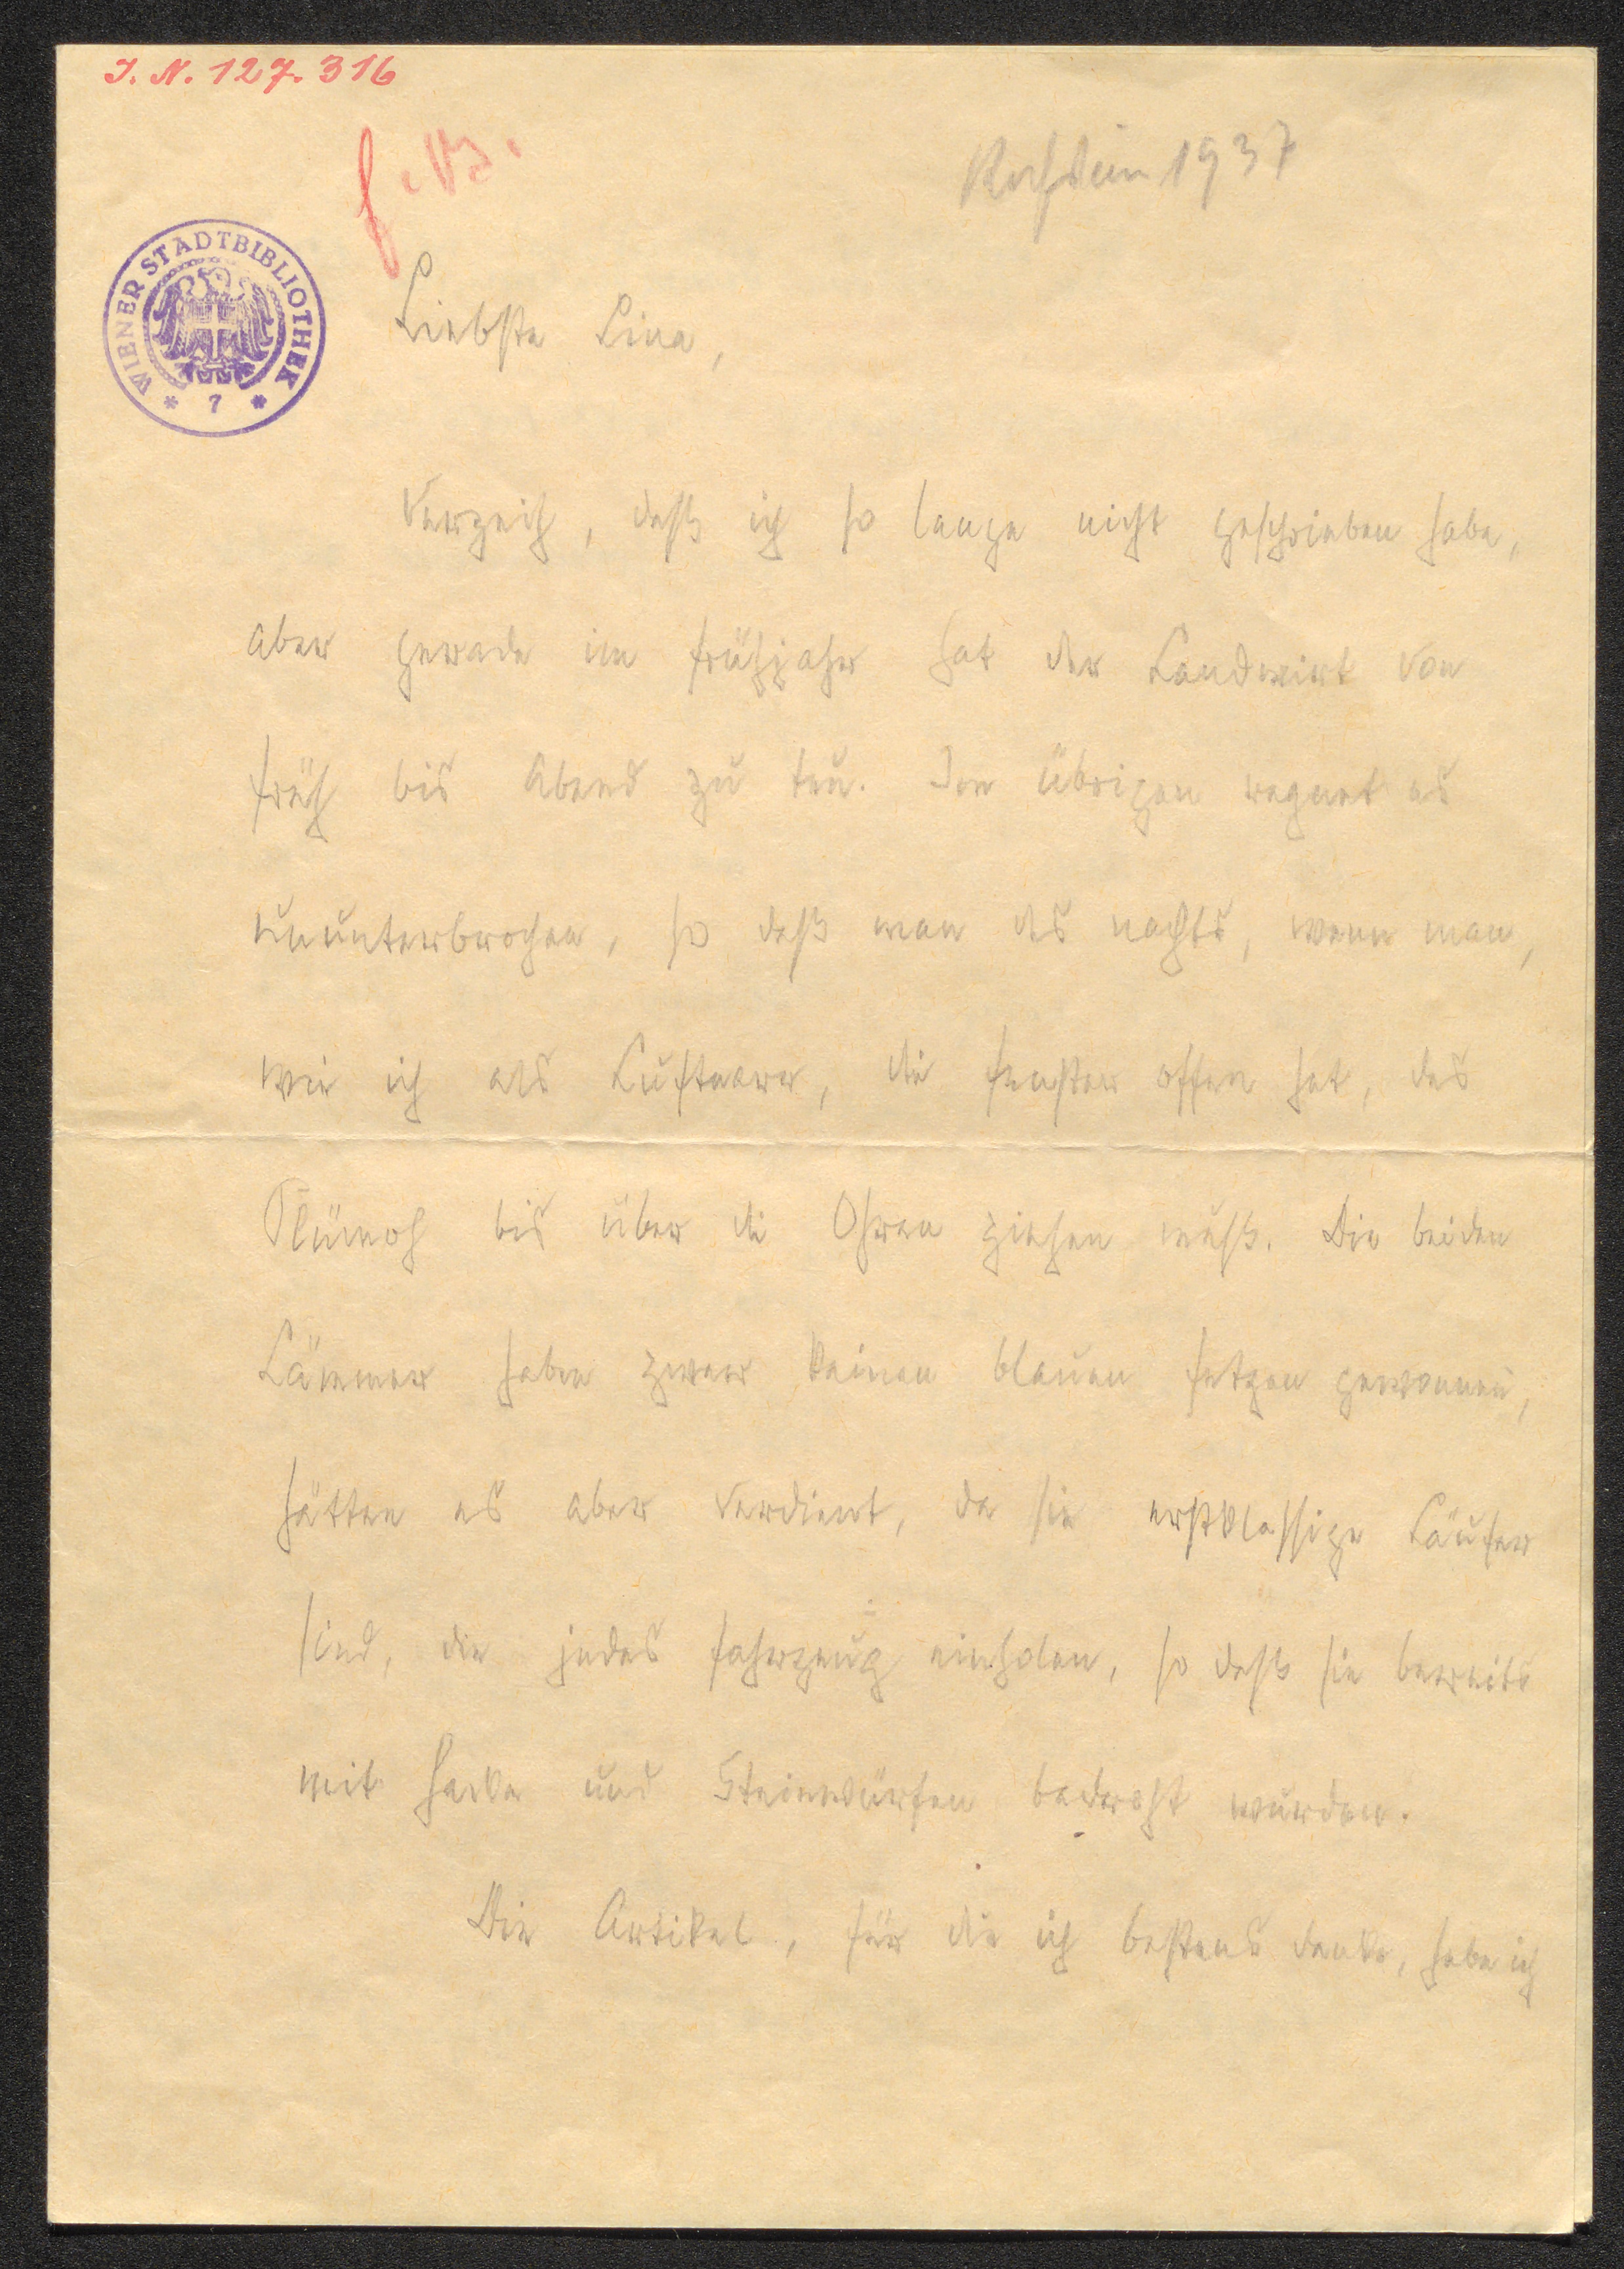 I. N. 127.316
1937
WIENER STADTBIBLIOTHEK
* 7 *
Liebste Lina,
Verzeih, daß ich so lange nicht geschrieben habe,
aber gerade im Frühjahr hat der Landwirt von
früh bis Abend zu tun. Im übrigen regnet es
ununterbrochen, so daß man des nachts, wenn man,
wie ich als Luftnarr, die Fenster offen hat, das
Plümoh bis über die Ohren ziehen muß. Die beiden
Lämmer haben zwar keinen blauen Fetzen gewonnen,
hätten es aber verdient, da sie erstklassige Läufer
sind, die jedes Fahrzeug einholen, so daß sie bereits
mit Hacke und Steinwürfen bedroht wurden.
Die Artikel, für die ich bestens danke, habe ich